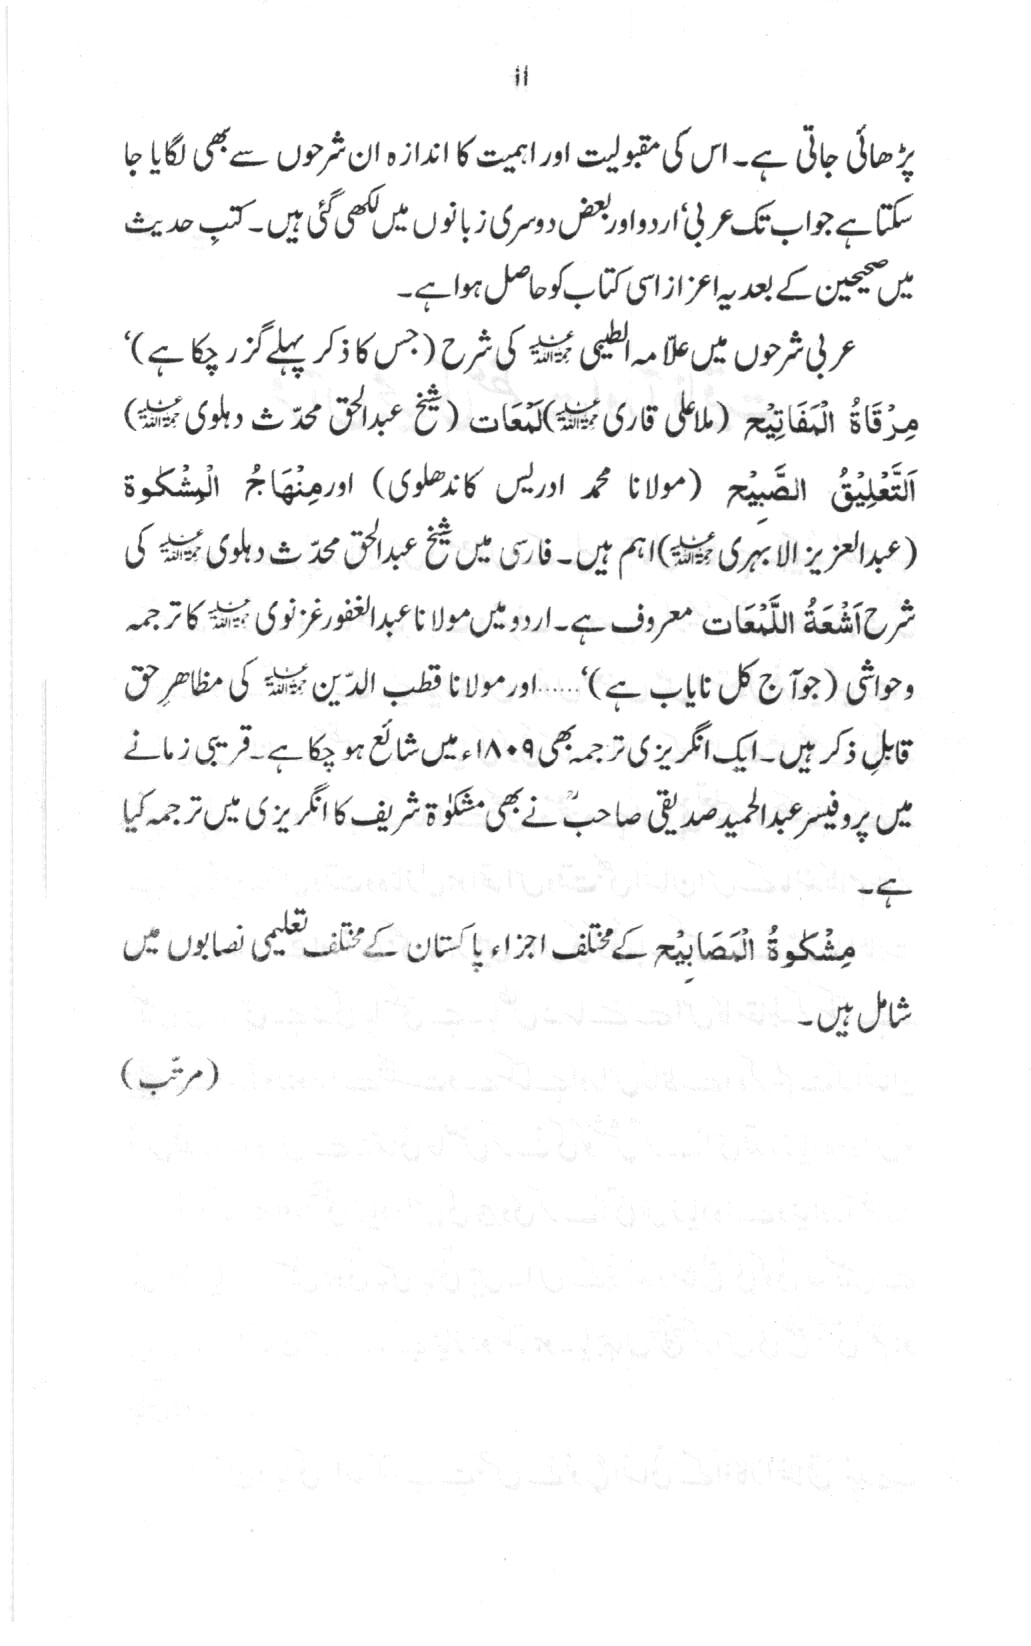 ii
پڑھائی جاتی ہے۔ اس کی مقبولیت اور اہمیت کا اندازہ ان شرحوں سے بھی لگایا جا
سکتا ہے جو اب تک عربی‘ اردو اور بعض دوسری زبانوں میں لکھی گئی ہیں۔ کتبِ حدیث
میں صحیحین کے بعد یہ اعزاز اسی کتاب کو حاصل ہوا ہے۔
عربی شرحوں میں علاّمہ الطیبی رحمۃ اللہ علیہ کی شرح (جس کا ذکر پہلے گزر چکا ہے)‘
مِرْقَاةُ الْمَفَاتِيْح (ملا علی قاری رحمۃ اللہ علیہ) لَمْعَات (شیخ عبدالحق محدّث دہلوی رحمۃ اللہ علیہ)
اَلتَّعْلِيْقُ الصَّبِيْح (مولانا محمد ادریس کاندھلوی) اور مِنْهَاجُ الْمِشْكٰوة
(عبدالعزیز الابہری رحمۃ اللہ علیہ) اہم ہیں۔ فارسی میں شیخ عبدالحق محدّث دہلوی رحمۃ اللہ علیہ کی
شرح اَشْعَةُ اللَّمْعَات معروف ہے۔ اردو میں مولانا عبدالغفور غزنوی رحمۃ اللہ علیہ کا ترجمہ
وحواشی (جو آج کل نایاب ہے)‘...... اور مولانا قطب الدّین رحمۃ اللہ علیہ کی مظاہرِ حق
قابلِ ذکر ہیں۔ ایک انگریزی ترجمہ بھی ۱۸۰۹ء میں شائع ہو چکا ہے۔ قریبی زمانے
میں پروفیسر عبدالحمید صدیقی صاحبؒ نے بھی مشکوٰۃ شریف کا انگریزی میں ترجمہ کیا
ہے۔
مِشْكٰوةُ الْمَصَابِيْح کے مختلف اجزاء پاکستان کے مختلف تعلیمی نصابوں میں
شامل ہیں۔
(مرتّب)